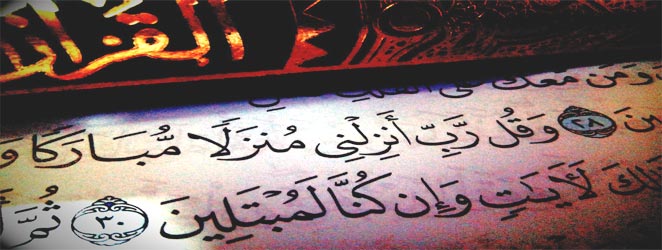 القرآن
وَمَن مَّعَكَ عَلَى ٱلْفُلْكِ
ينَ ٢٨ وَقُل رَّبِّ أَنزِلْنِى مُنزَلًا مُّبَارَكًا و
لِكَ لَءَايَٰتٍ وَإِن كُنَّا لَمُبْتَلِينَ ٣٠ ثُمَّ